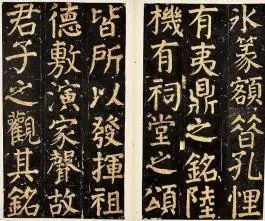 水篆額管孔悝
有夷鼎之銘陸
機有祠堂之頌
皆所以發揮祖
德敷演家聲故
君子之觀其銘